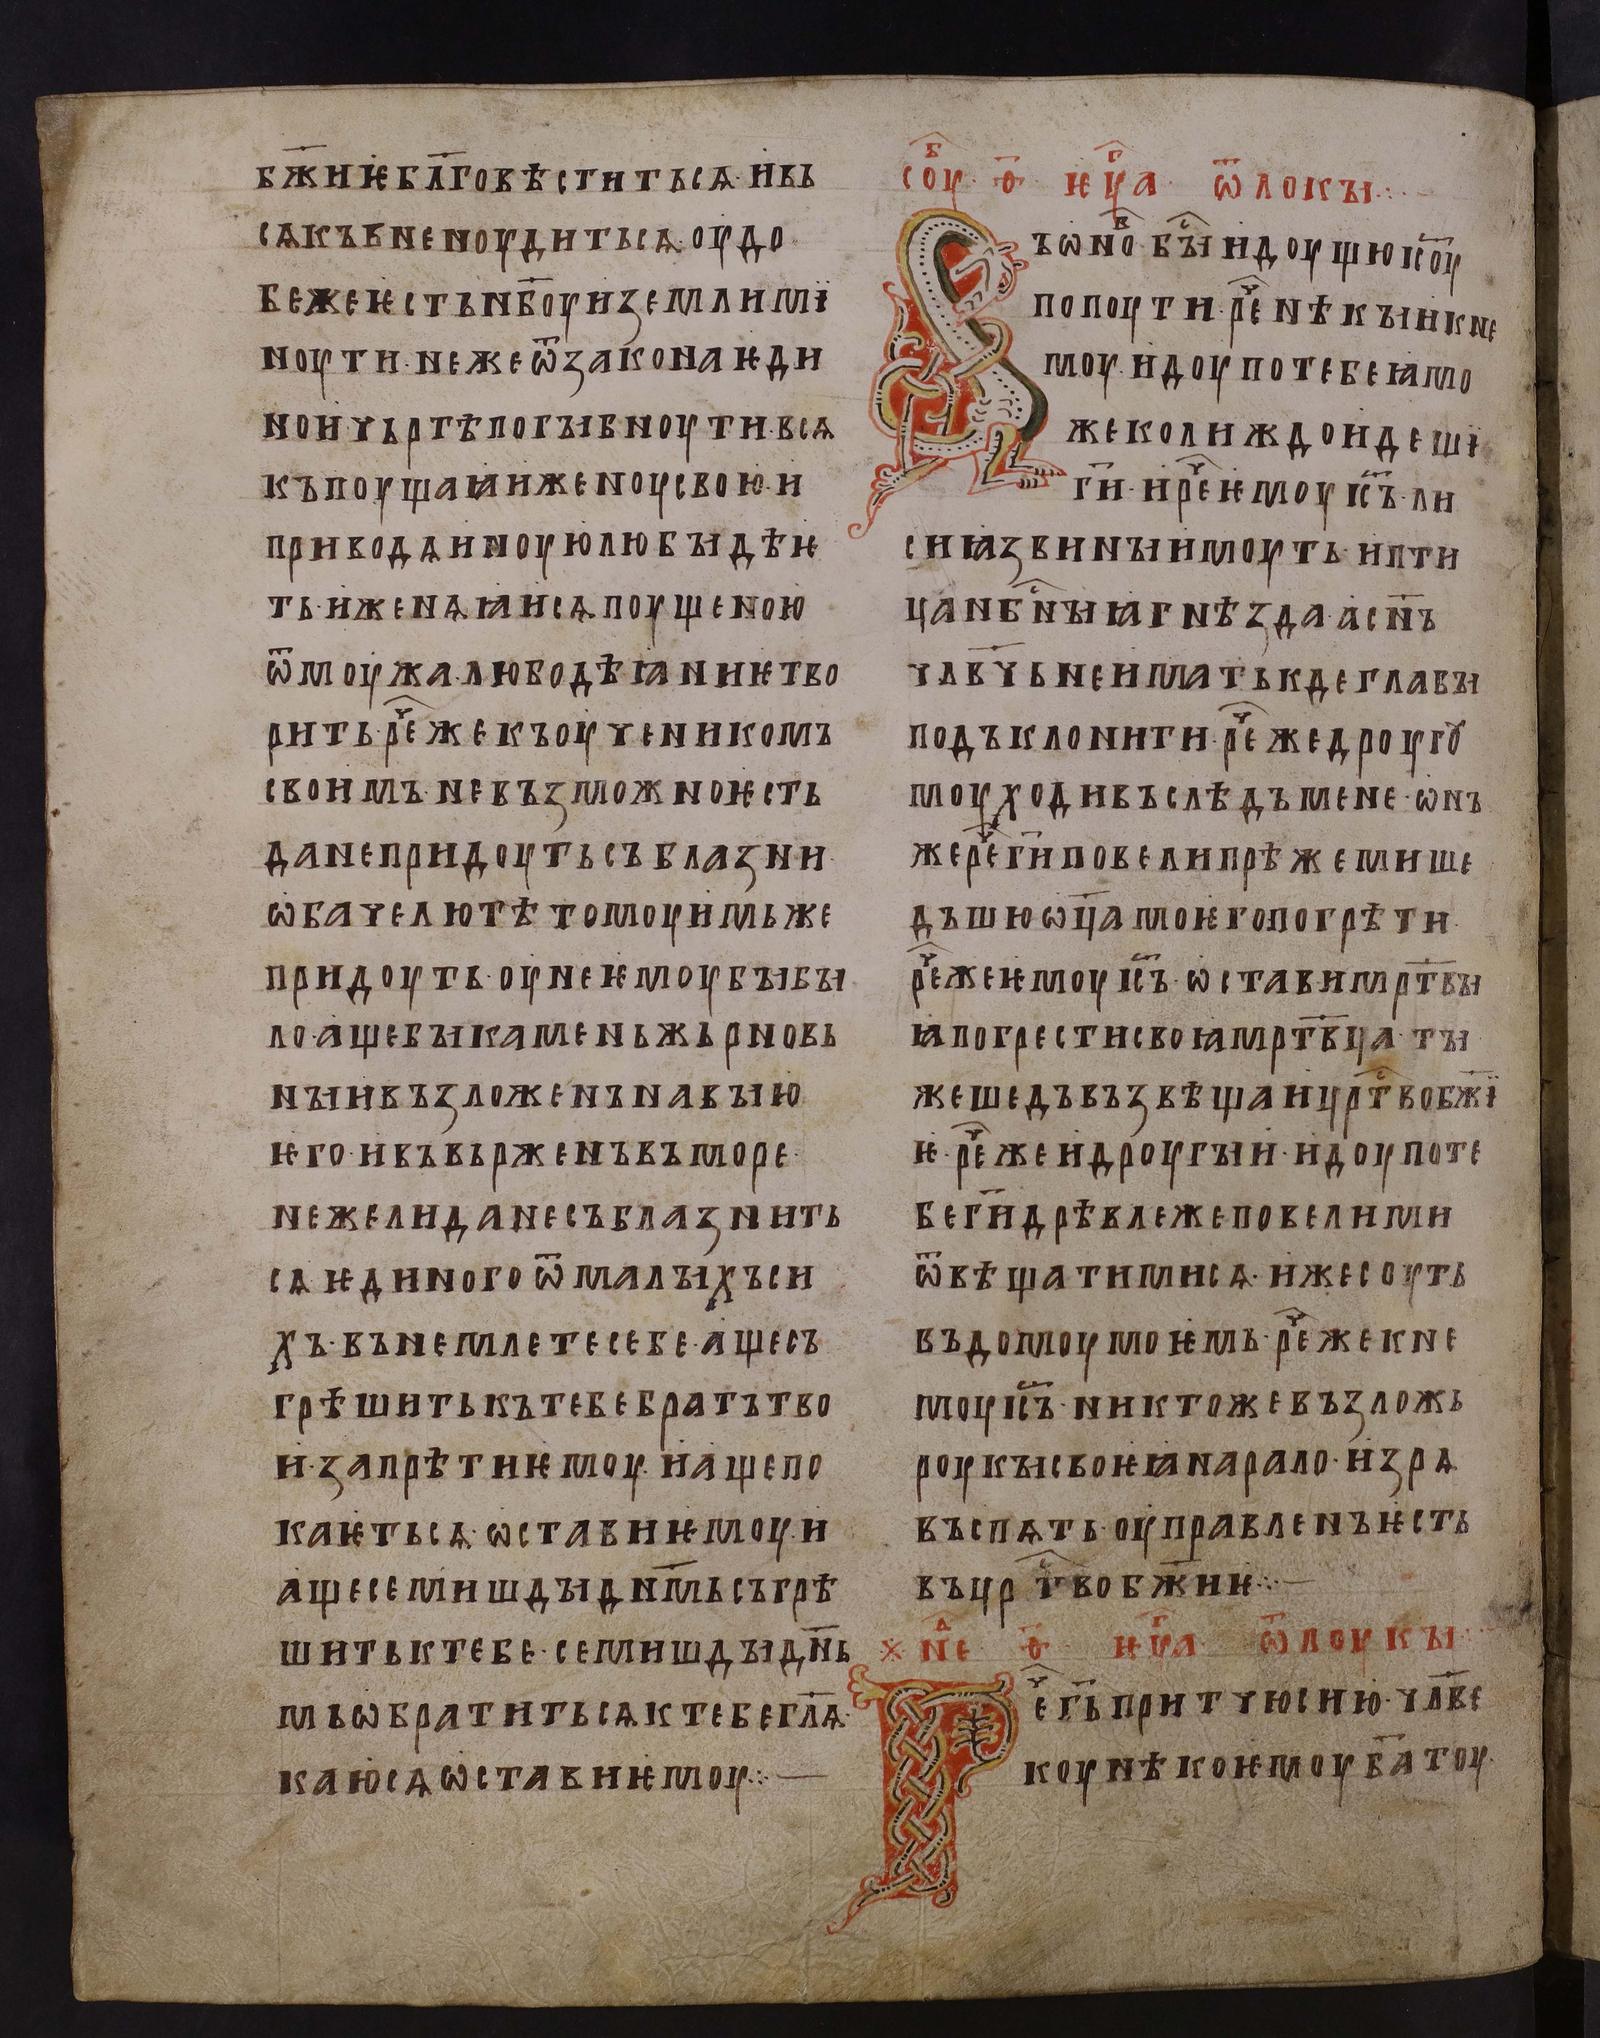 бж҃ниѥ бл҃говѣститьсѧ· и вь
сѧкъ в не ноудитьсѧ· оудо
беже ѥсть нб҃оу и земли ми
ноути· неже ѿ закона ѥди
нои чьртѣ погыбноути· всѧ
къ поущаꙗи женоу свою· и
приводѧ иноую любы дѣѥ
ть· и женѧꙗисѧ поущеною
ѿ моужа· любодѣꙗниѥ тво
рить· рⷱ҇е же къ оученикомъ
своимъ· не възможно ѥсть
да не придоуть съблазни
ѡбаче лютѣ томоу имьже
придоуть· оунѥ ѥмоу бы бы
ло· аще бы камень жьрновь
ныи възложенъ на выю
ѥго· и въвьрженъ въ море·
неже ли да не съблазнить
сѧ ѥдиного ѿ малыхъ си
хъ· вънемлете себе· аще съ
грѣшить къ тебе братъ тво
и· запрѣти ѥмоу· и аще по
каѥтьсѧ· ѡстави ѥмоу· и
аще семишды дн҃мь съгрѣ
шить к тебе· семишды дн҃ь
мь ѡбратитьсѧ к тебе гл҃ѧ·
каюсѧ ѡстави ѥмоу:·—
соуⷠ҇ · ѳ҃ · ѥуⷢ҇а · ѿ локы:·
Въ ѡноⷡ҇ быⷭ҇ идоущю іс҃оу
по поути· рⷱ҇е нѣкыи к не
моу· идоу по тебе ꙗмо
же колиждо идеши
г҃и· и рⷱ҇е ѥмоу іс҃ъ· ли
си ꙗзвины имоуть· и пти
ца нбⷭ҇ныꙗ гнѣзда· а сн҃ъ
члв҃чь не имать кде главы
подъклонити· рⷱ҇е же дроуго
моу ходи въ слѣдъ мене· ѡнъ
же рⷱ҇е г҃и повели прѣже ми ше
дъшю ѡц҃а моѥго погрѣти
рⷱ҇е же ѥмоу іс҃ъ· ѡстави мрт҃вы
ꙗ погрести своꙗ мрт҃вца· ты
же шедъ възвѣщаи црⷭ҇тво бж҃и
ѥ· рⷱ҇е же и дроугыи· идоу по те
бе г҃и дрѣвле же повели ми
ѿвѣщати ми сѧ· иже соуть
въ домоу моѥмь· рⷱ҇е же к не
моу іс҃ъ· никтоже възложь
роукы своѥꙗ на рало· и зрѧ
въспѧть· оуправленъ ѥсть
въ црⷭ҇тво бж҃иѥ:·—
※ неⷣ · ѳ҃ · ѥуⷢ҇а · ѿ лоукы·
Рⷱ҇е г҃ь притчю сию· члв҃е
коу нѣкоѥмоу б҃атоу·